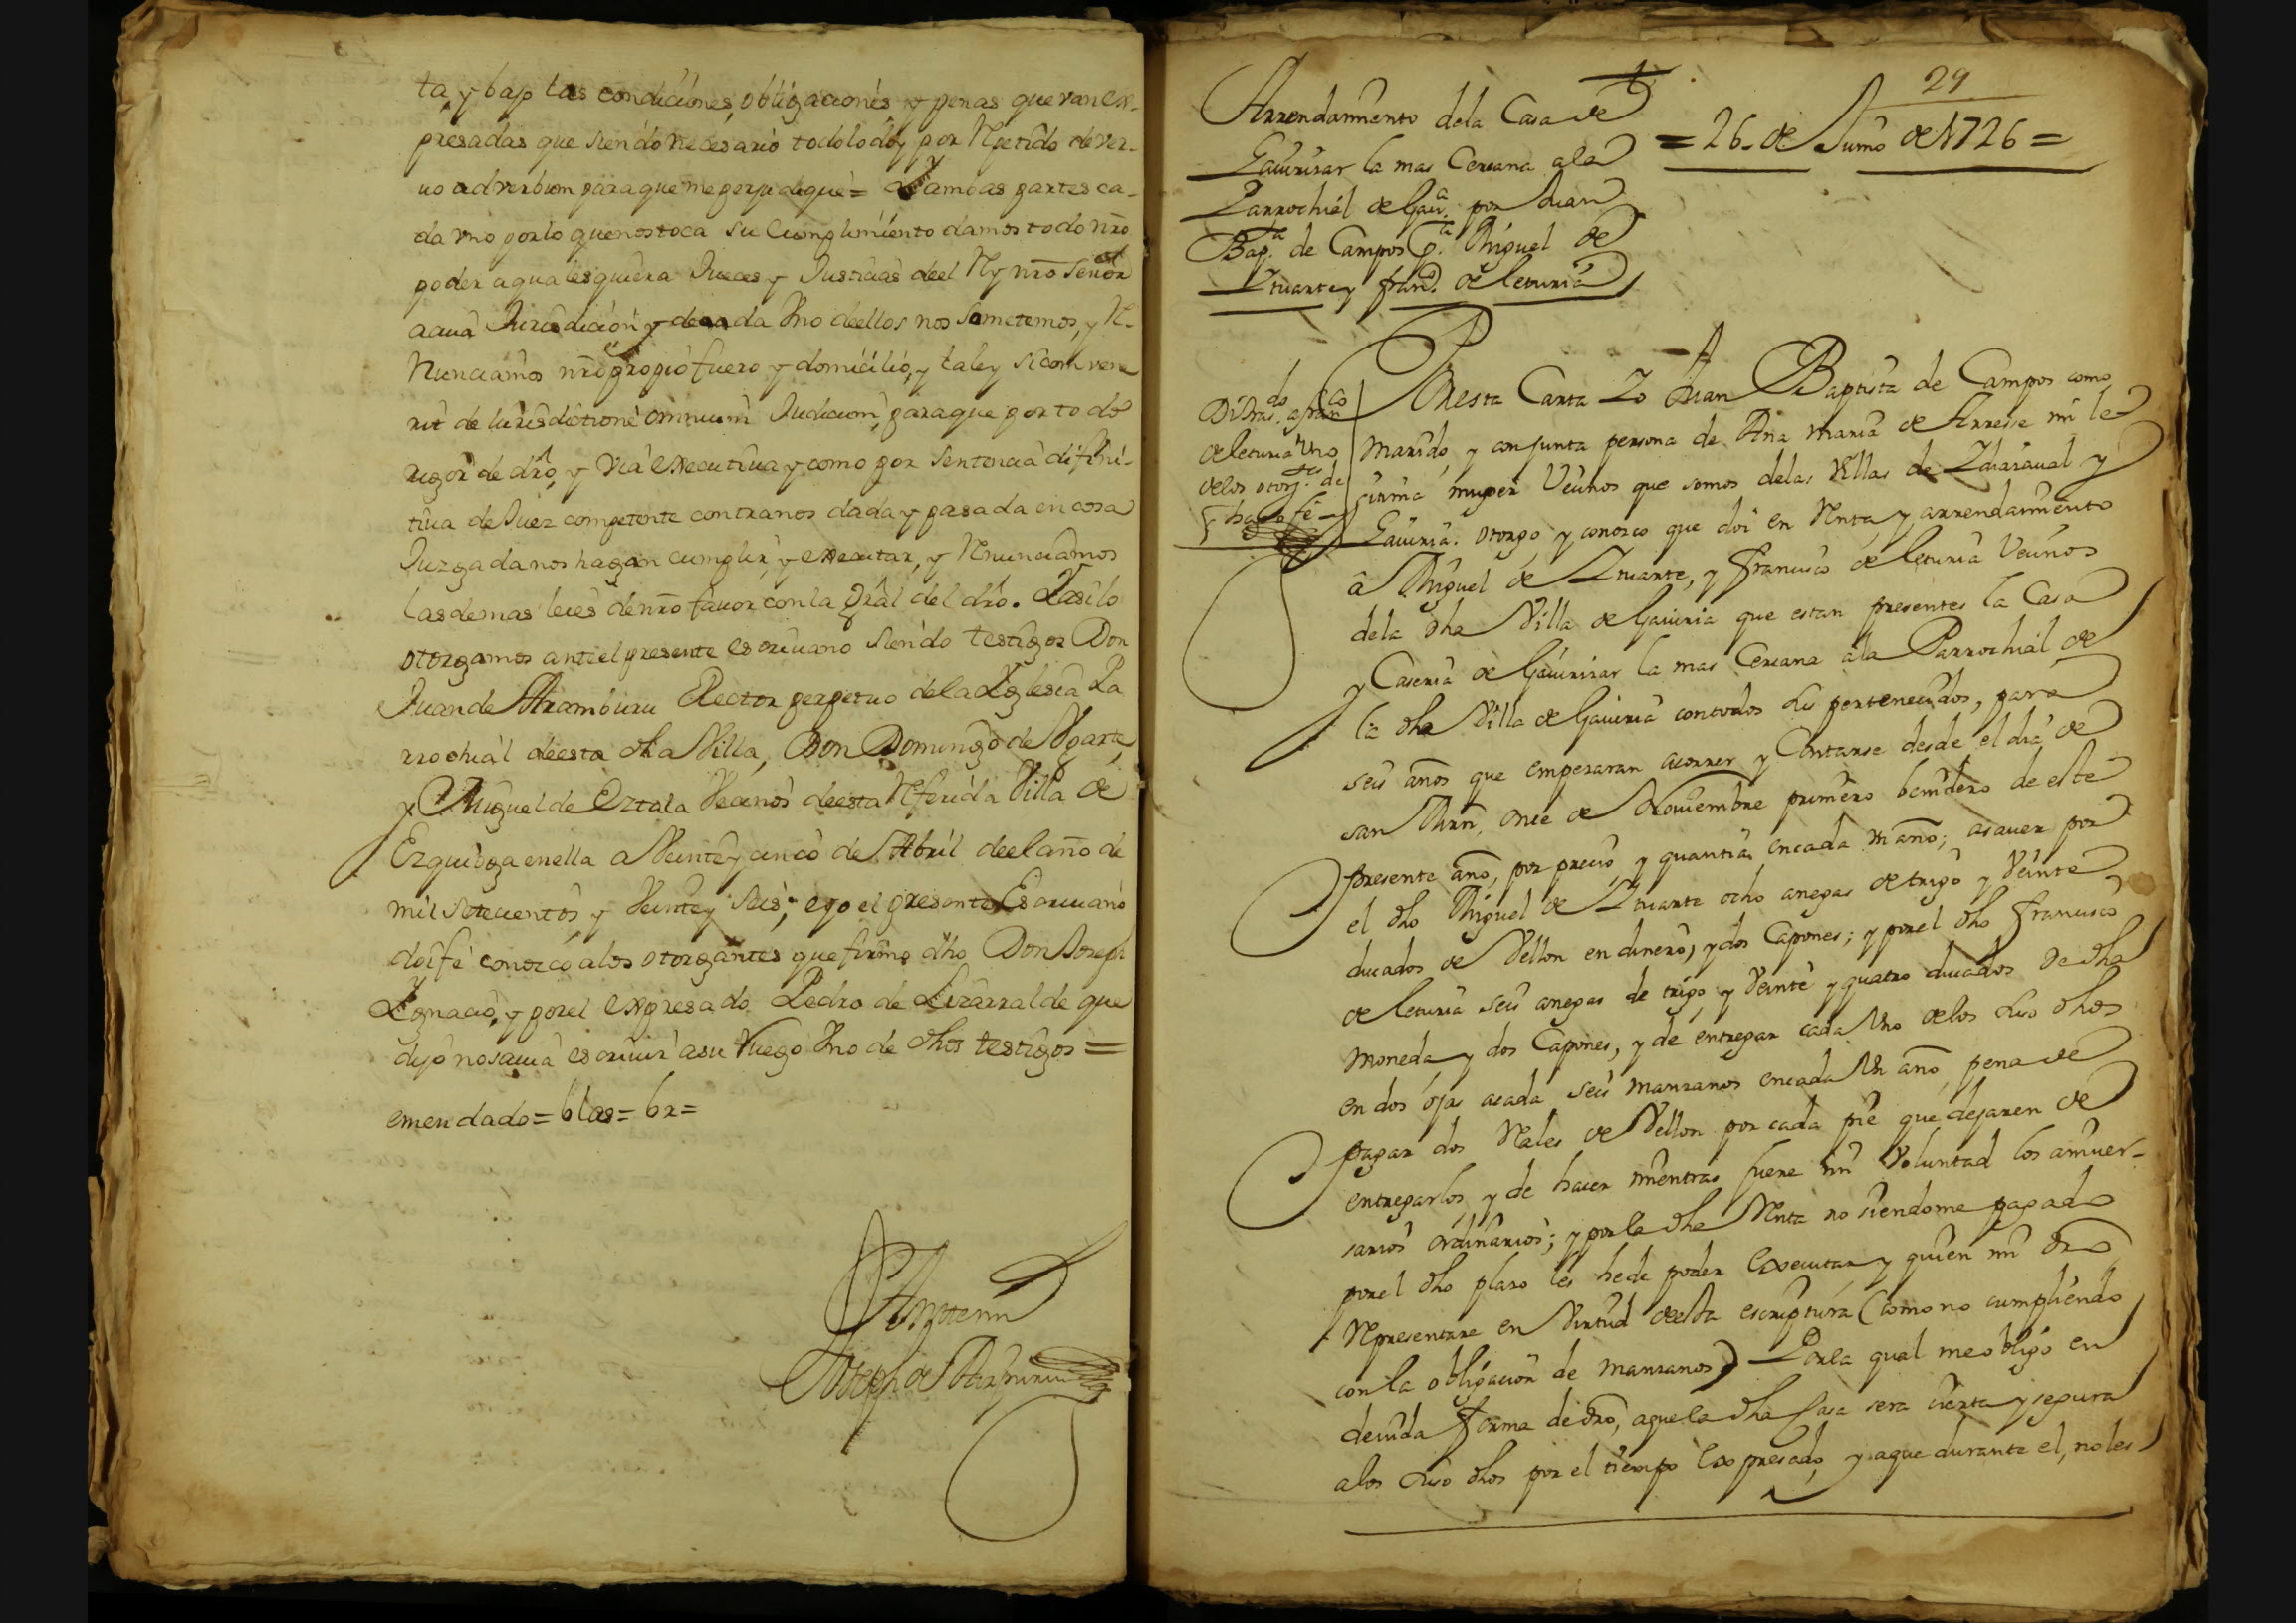 ta, y bajo las condiciones, obligaciones y penas que van ex-
presadas que siendo necesario todo lo doy por Rpetido de ver-
uo ad verbum para que me perjudique = Y ambas partes ca-
da vno por lo que nos toca su Cumplimiento damos todo nrō
poder a qualesquiera Jueces y Justicias deel Rey nrō señor
a cuia Jurisdicion y de cada Vno deellos nos sometemos, y R-
Nunciamos nrō propio fuero y domicilio, y la ley si comvene
rit de Iurisdictione omnium Judicum, para que por todo
rigor de drō, y via executiua y como por sentencia difini-
tiua de Juez competente contra nos dada y pasada en cosa
Juzgada nos hagan cumplir, y executar, y Rnunciamos
las demas leies de nrō fauor con la Grāl del drō. Y asi lo
otorgamos ante el presente escriuano siendo testigos Don
Juan de Aramburu Rector perpetuo de la Iglesia Pa
rrochial deesta dha Villa, Don Domingo de Vgarte,
y Miguel de Oztala Vecinos deesta Rferida Villa de
Ezquioga en ella a Veinte y cinco de Abril deel año de
mil setecientos y Veinte y seis; e yo el presente Escriuano
doi fe conozco a los otorgantes que firmo dho Don Joseph
Ygnacio, y por el expresado Pedro de Lizarralde que
dijo no sauia escriuir a su Ruego Vno de dhos testigos =
emendado = blas = br =
Ante mi
Joseph de Aramburu
29
Arrendamiento dela Casa de
Gauirisar la mas Cercana a la
Parrochial de Gauª. por Juan
Bapta. de Campos Pª. Miguel de
Ituarte y franco. de leturia
= 26. de Junio de 1726 =
Di tras.do a franco
de leturia Vno
de los otorg.tes de
q. hago fe =
Por esta Carta Yo Juan Baptista de Campos como
Marido, y conjunta persona de Ana Maria de Arrese mi le-
gitima muger Vecinos que somos delas Villas de Ichasaual y
Gauiria. otorgo y conozco que doi en Rnta y arrendamiento
a Miguel de Ituarte, y Francisco de leturia Vecinos
dela dha Villa de Gauiria que estan presentes la Casa
y Caseria de Gauirisar la mas Cercana a la Parrochial de
la dha Villa de Gauiria con todos sus pertenecidos, para
seis años que empesaran a correr y Contarse desde el dia de
san Mrñ, once de Nouiembre primero benidero de este
presente año, por precio y quantia, en cada Vn año; asauer por
el dho Miguel de Ituarte ocho anegas de trigo y Veinte
ducados de Vellon en dinero, y dos Capones; y por el dho francisco
de leturia seis anegas de trigo, y Veinte y quatro ducados de dha
Moneda, y dos Capones, y de entregar cada Vno de los suso dhos
en dos ojas a cada seis manzanos en cada Vn año, pena de
pagar dos Rales de Vellon por cada pie que dejaren de
entregarlos, y de hacer mientras fuere mi Voluntad los aniuer-
sarios ordinarios; y por la dha Rnta no siendome pagado
por el dho plazo les he de poder Executar y quien mi drō
Rpresentare en Virtud deesta escriptura (como no cumpliendo
con la obligacion de manzanos) Por la qual me obligo en
deuida forma de drō, a que la dha Casa sera cierta y segura
a los suso dhos por el tiempo Expresado, y a que durante el, no les